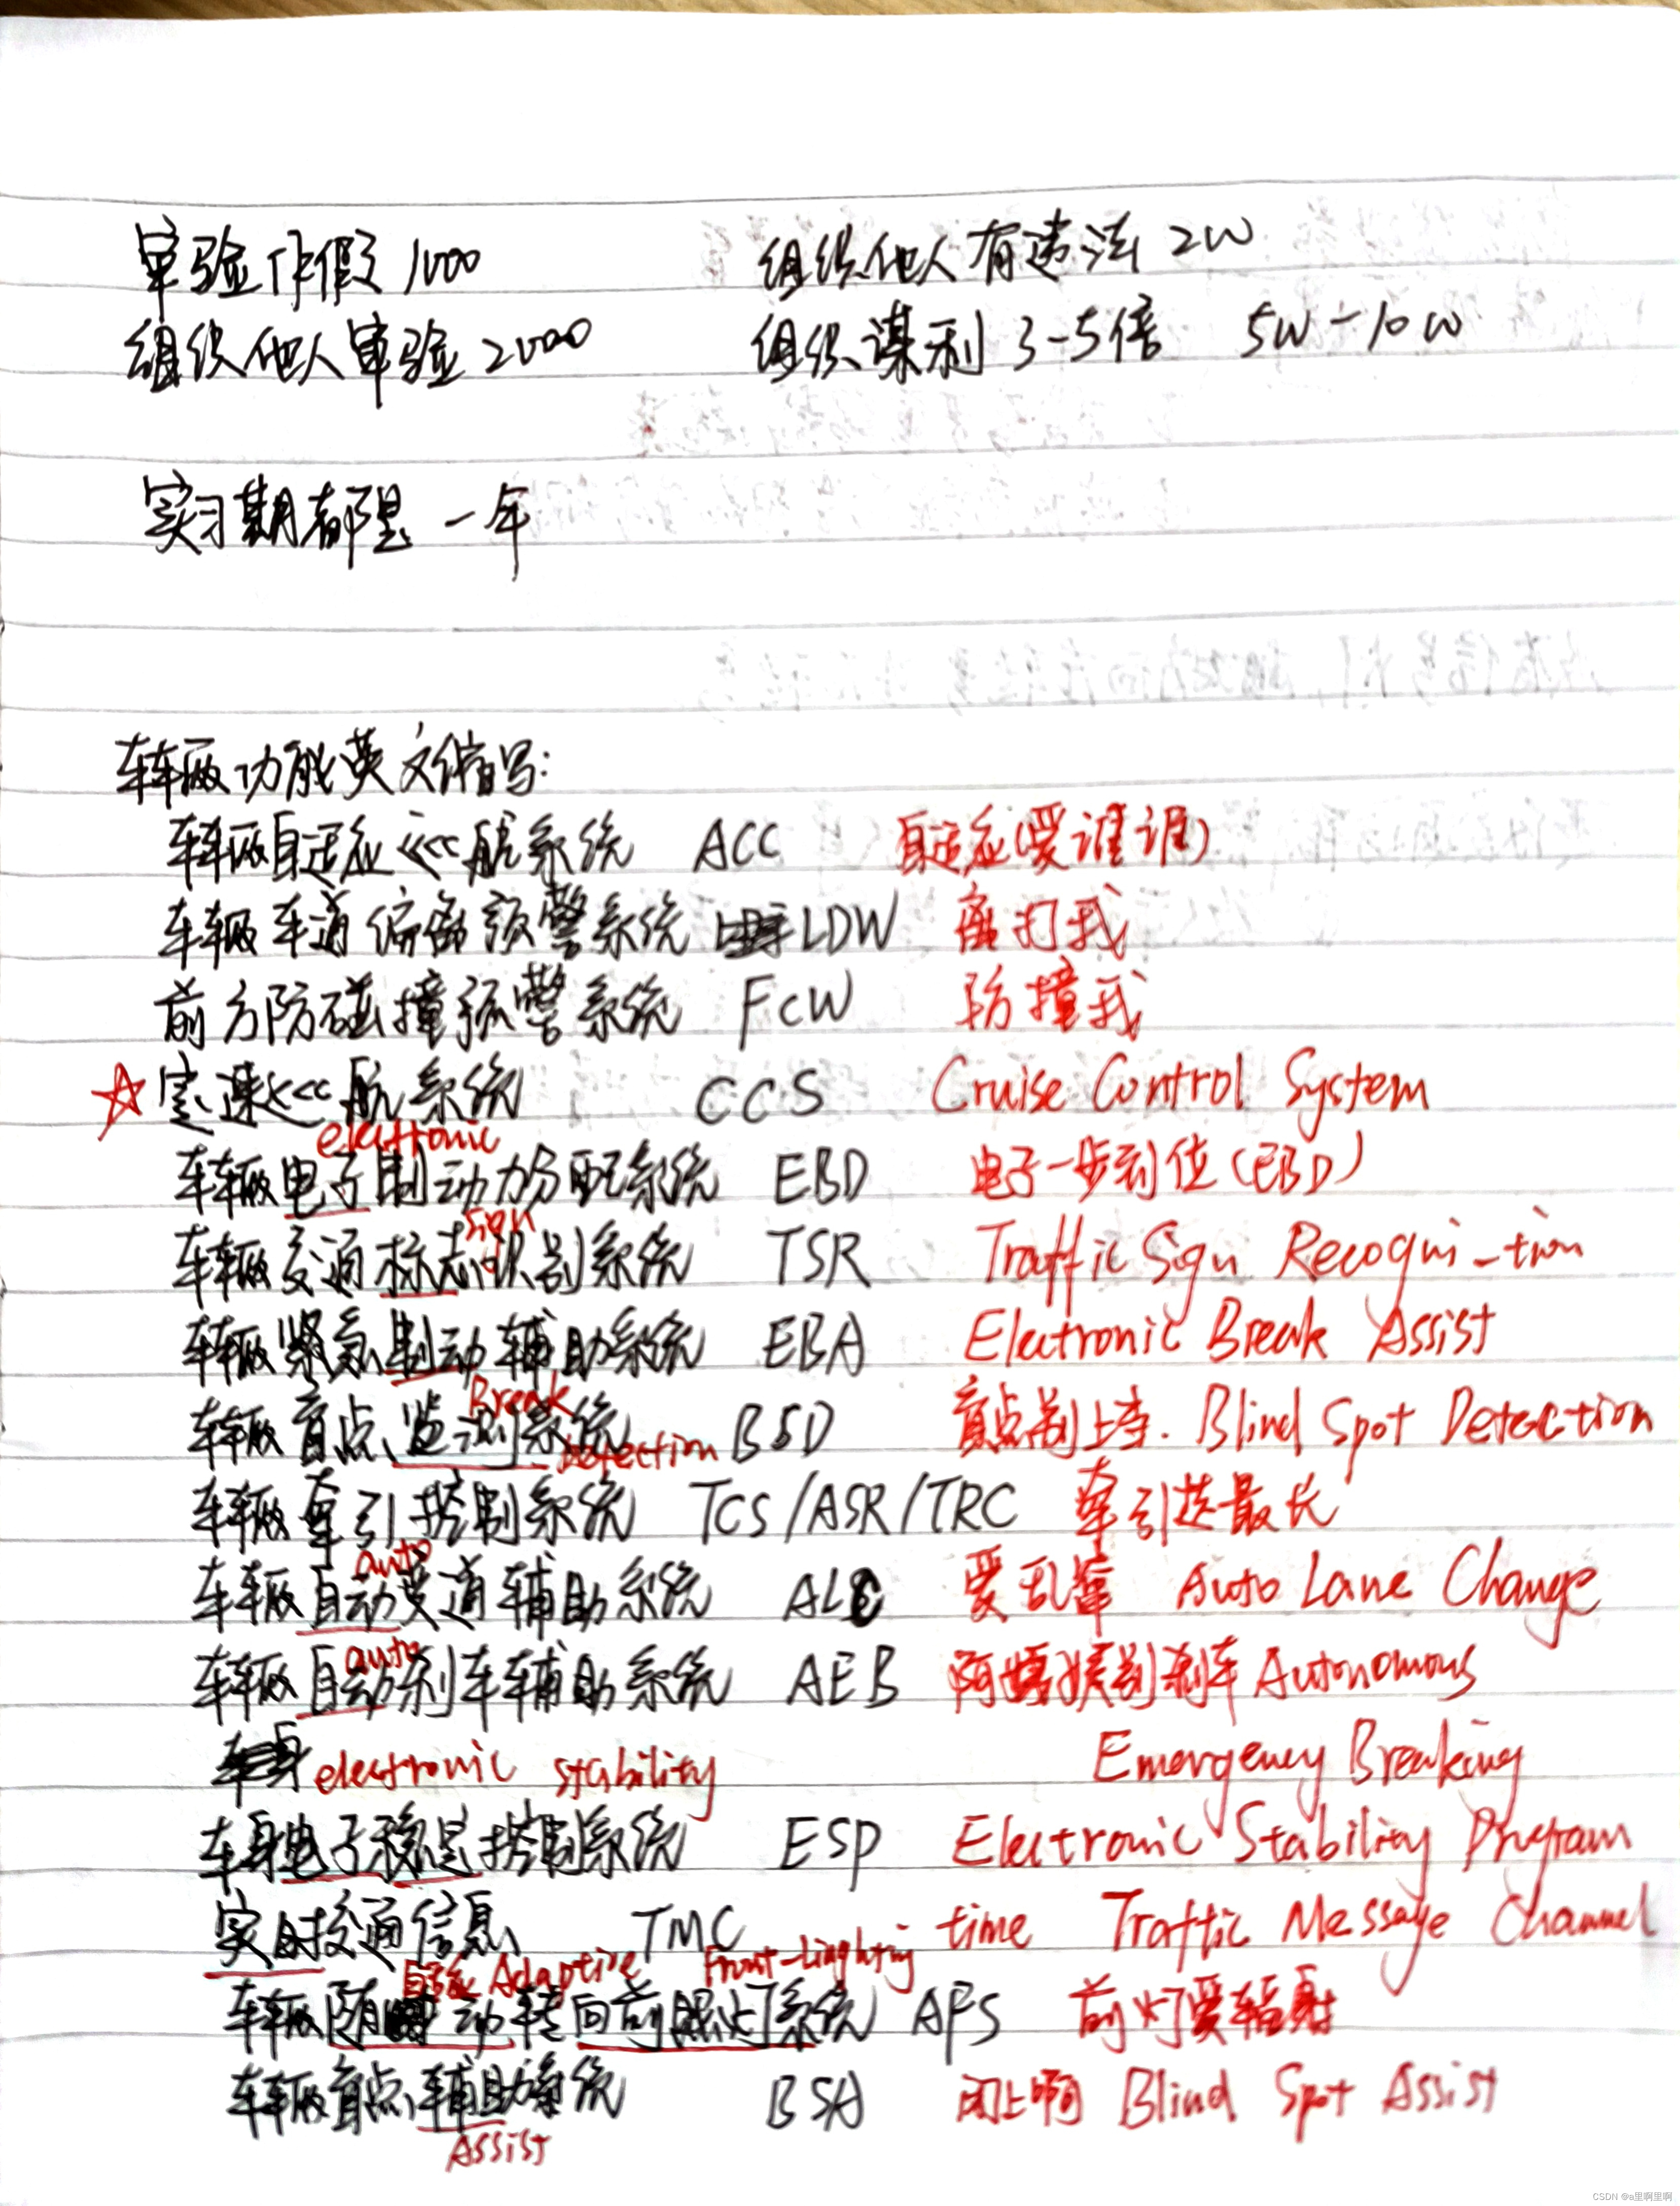 审验作假 1000 组织他人有违法 2W
组织他人审验 2000 组织谋利 3-5倍 5W-10W
实习期都是一年
车辆功能英文缩写:
车辆自适应巡航系统 ACC 自适应(爱谁谁)
车辆车道偏离预警系统 LDW 离打我
前方防碰撞预警系统 FCW 防撞我
☆ 定速巡航系统 CCS Cruise Control System
electronic
车辆电子制动力分配系统 EBD 电子一步到位(EBD)
sign
车辆交通标志识别系统 TSR Traffic Sign Recogni-tion
车辆紧急制动辅助系统 EBA Electronic Break Assist
Break
车辆盲点监测系统 BSD 盲点别上去. Blind Spot Detection
Detection
车辆牵引控制系统 TCS/ASR/TRC 牵引选最长
auto
车辆自动变道辅助系统 ALC 爱乱窜 Auto Lane Change
auto
车辆自动刹车辅助系统 AEB 刹车 Autonomous
electronic stability Emergency Breaking
车身电子稳定控制系统 ESP Electronic Stability Program
实时交通信息 TMC time Traffic Message Channel
自适应 Adaptive Front-Linghting
车辆随动转向前照灯系统 AFS 前灯爱辐射
车辆盲点辅助系统 BSA 闭上啊 Blind Spot Assist
Assist
CSDN @a里啊里啊